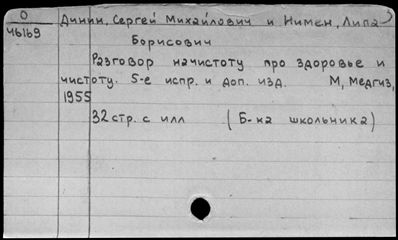 О
46169
Динин, Сергей Михайлович и Нимен, Липа
Борисович
Разговор начистоту про здоровье и
чистоту. 5-е испр. и доп. изд. М, Медгиз,
1955
32 стр. с илл (Б-ка школьника)